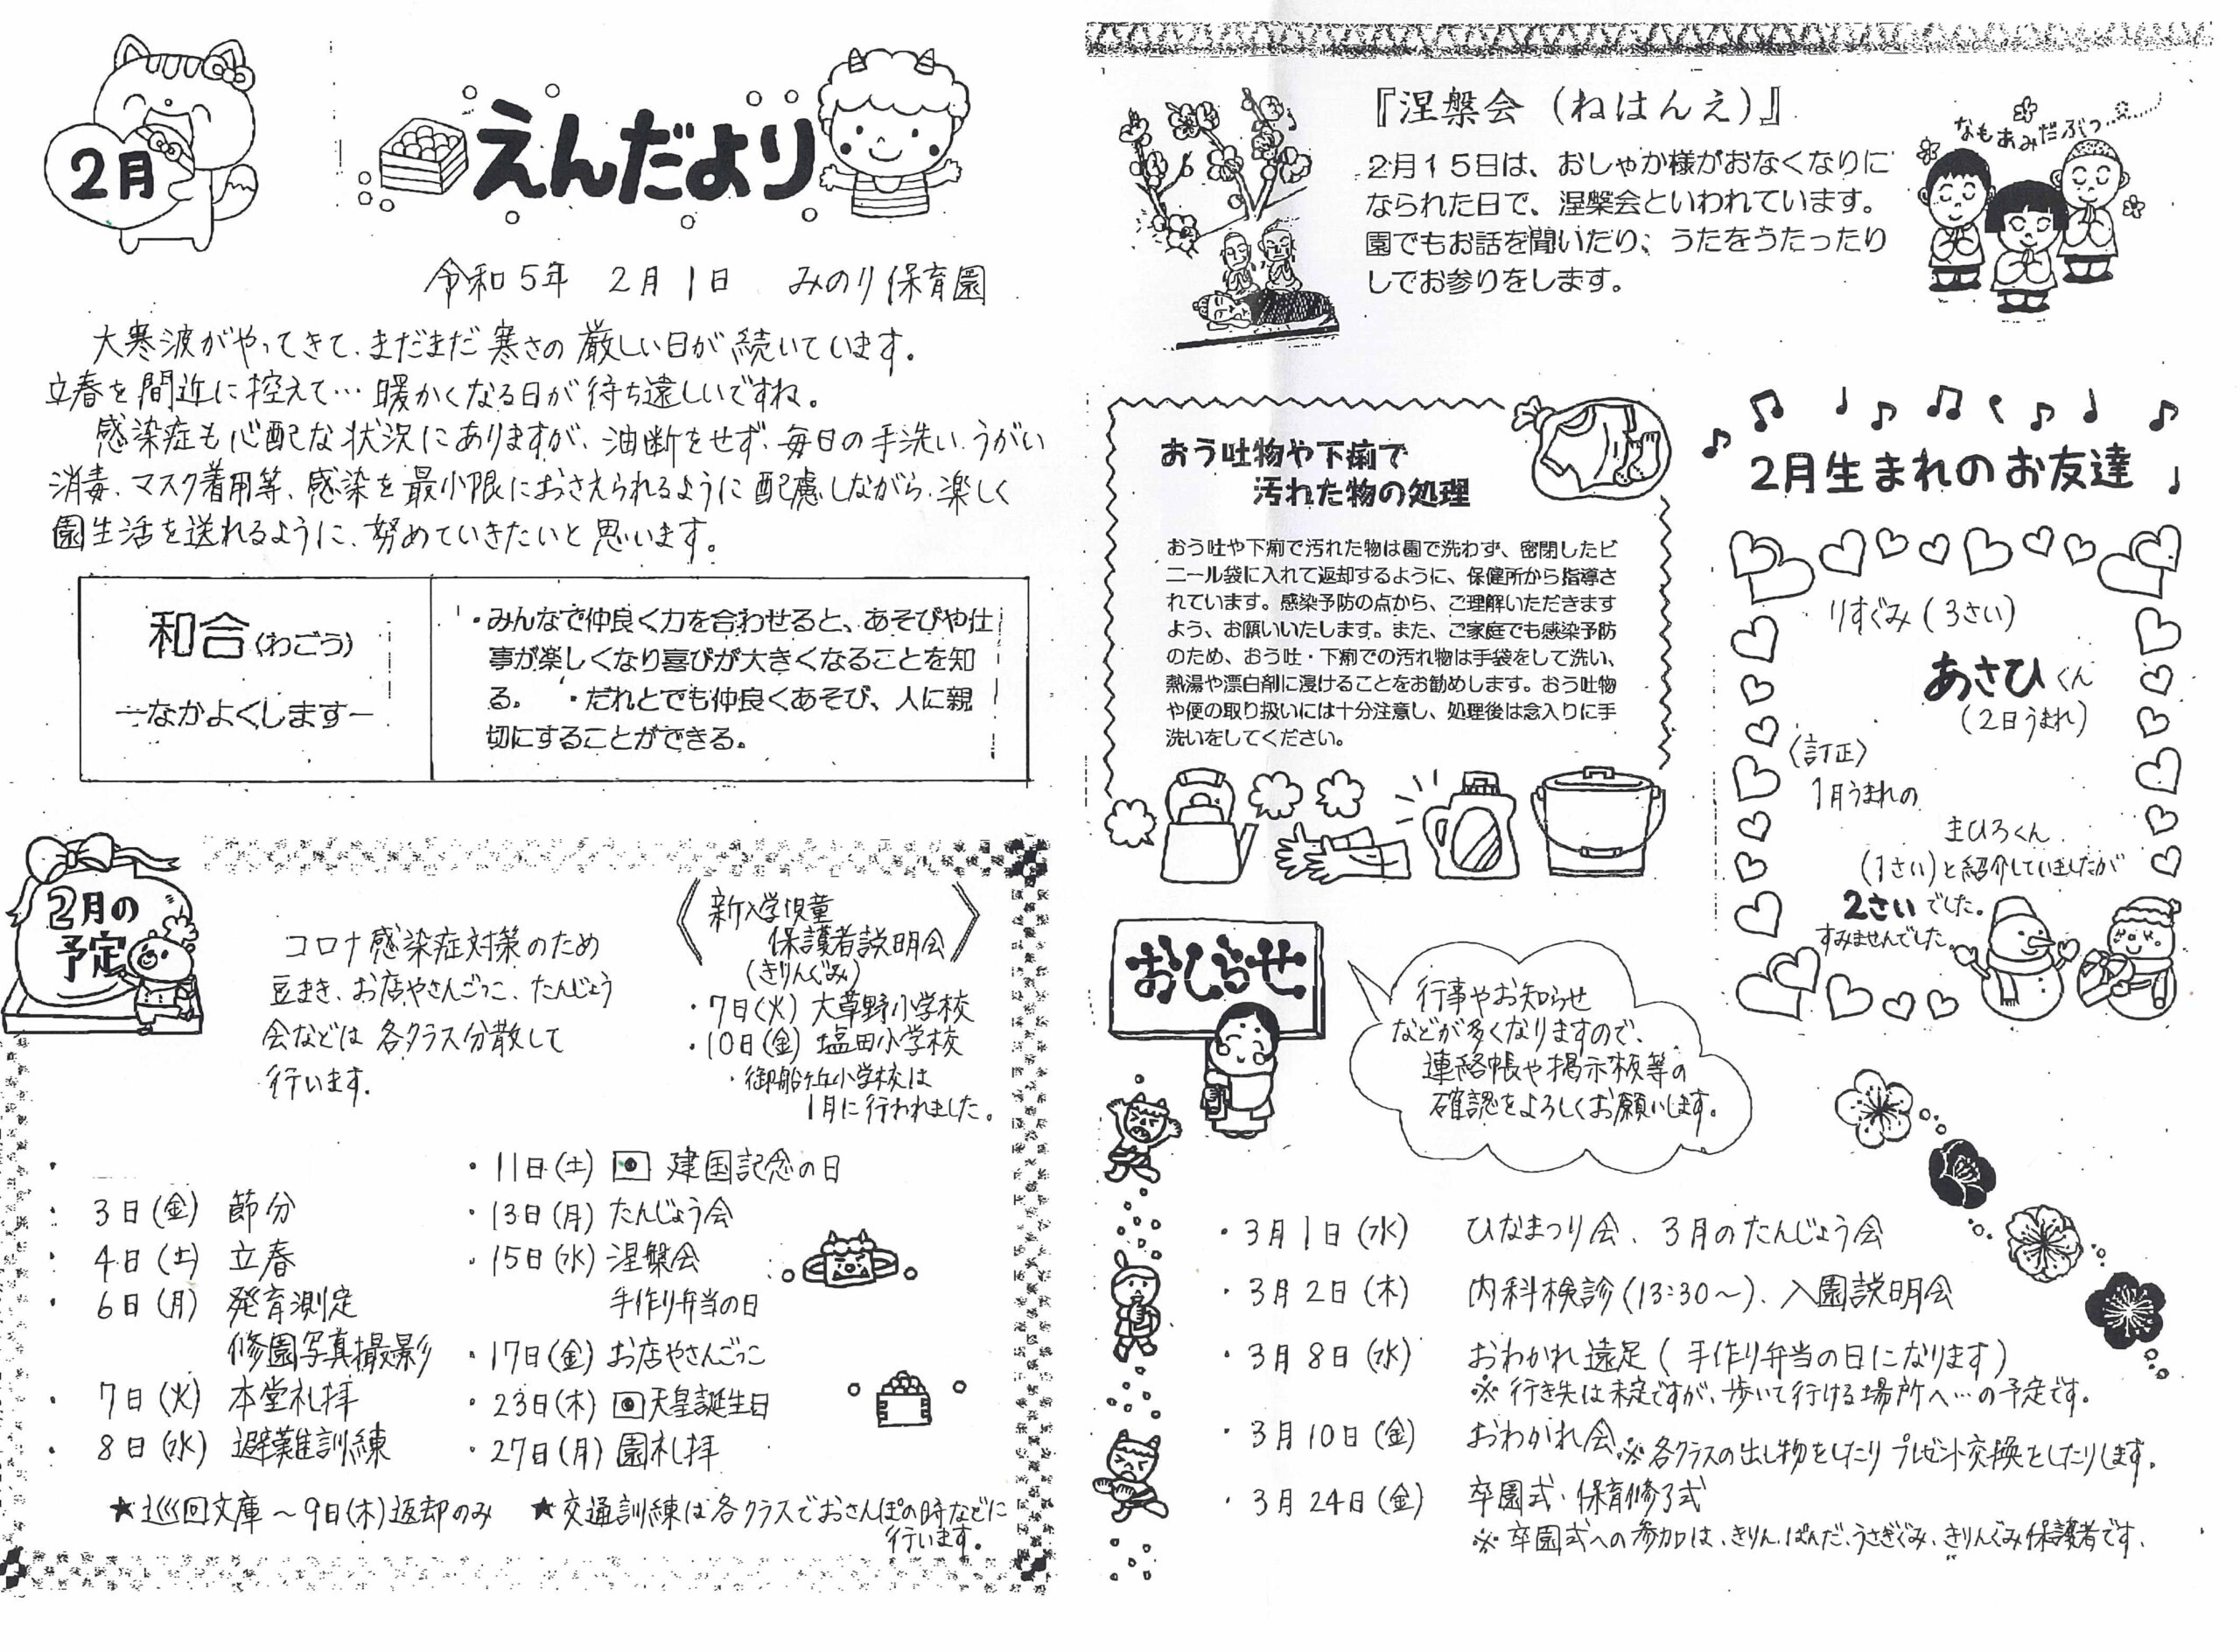 2月
えんだより
令和5年 2月1日 みのり保育園
大寒波がやってきて、まだまだ寒さの厳しい日が続いています。
立春を間近に控えて…暖かくなる日が待ち遠しいですね。
感染症も心配な状況にありますが、油断をせず、毎日の手洗い、うがい
消毒、マスク着用等、感染を最小限におさえられるように配慮しながら、楽しく
園生活を送れるように、努めていきたいと思います。
和合(わごう)
―なかよくします―
・みんなで仲良く力を合わせると、あそびや仕
事が楽しくなり喜びが大きくなることを知
る。 ・だれとでも仲良くあそび、人に親
切にすることができる。
2月の
予定
コロナ感染症対策のため
豆まき、お店やさんごっこ、たんじょう
会などは各クラス分散して
行います。
《新入学児童
保護者説明会》
(きりんぐみ)
・7日(火) 大草野小学校
・10日(金) 塩田小学校
・御船が丘小学校は
1月に行われました。
・3日(金) 節分
・4日(土) 立春
・6日(月) 発育測定
修園写真撮影
・7日(火) 本堂礼拝
・8日(水) 避難訓練
・11日(土) 建国記念の日
・13日(月) たんじょう会
・15日(水) 涅槃会
手作り弁当の日
・17日(金) お店やさんごっこ
・23日(木) 天皇誕生日
・27日(月) 園礼拝
★巡回文庫～9日(木)返却のみ
★交通訓練は各クラスでおさんぽの時などに
行います。
『涅槃会（ねはんえ）』
２月１５日は、おしゃか様がおなくなりに
なられた日で、涅槃会といわれています。
園でもお話を聞いたり、うたをうたったり
してお参りをします。
なもあみだぶつ……
おう吐物や下痢で
汚れた物の処理
おう吐や下痢で汚れた物は園で洗わず、密閉したビ
ニール袋に入れて返却するように、保健所から指導さ
れています。感染予防の点から、ご理解いただきます
よう、お願いいたします。また、ご家庭でも感染予防
のため、おう吐・下痢での汚れ物は手袋をして洗い、
熱湯や漂白剤に浸けることをお勧めします。おう吐物
や便の取り扱いには十分注意し、処理後は念入りに手
洗いをしてください。
2月生まれのお友達
りすぐみ(3さい)
あさひくん
(2日うまれ)
〈訂正〉
1月うまれの
まひろくん
(1さい)と紹介していましたが
2さいでした。
すみませんでした。
おしらせ
行事やお知らせ
などが多くなりますので、
連絡帳や掲示板等の
確認をよろしくお願いします。
・3月1日(水) ひなまつり会、3月のたんじょう会
・3月2日(木) 内科検診(13:30～)、入園説明会
・3月8日(水) おわかれ遠足(手作り弁当の日になります)
※行き先は未定ですが、歩いて行ける場所へ…の予定です。
・3月10日(金) おわかれ会 ※各クラスの出し物をしたりプレゼント交換をしたりします。
・3月24日(金) 卒園式・保育修了式
※卒園式への参加は、きりん、ぱんだ、うさぎぐみ、きりんぐみ保護者です。